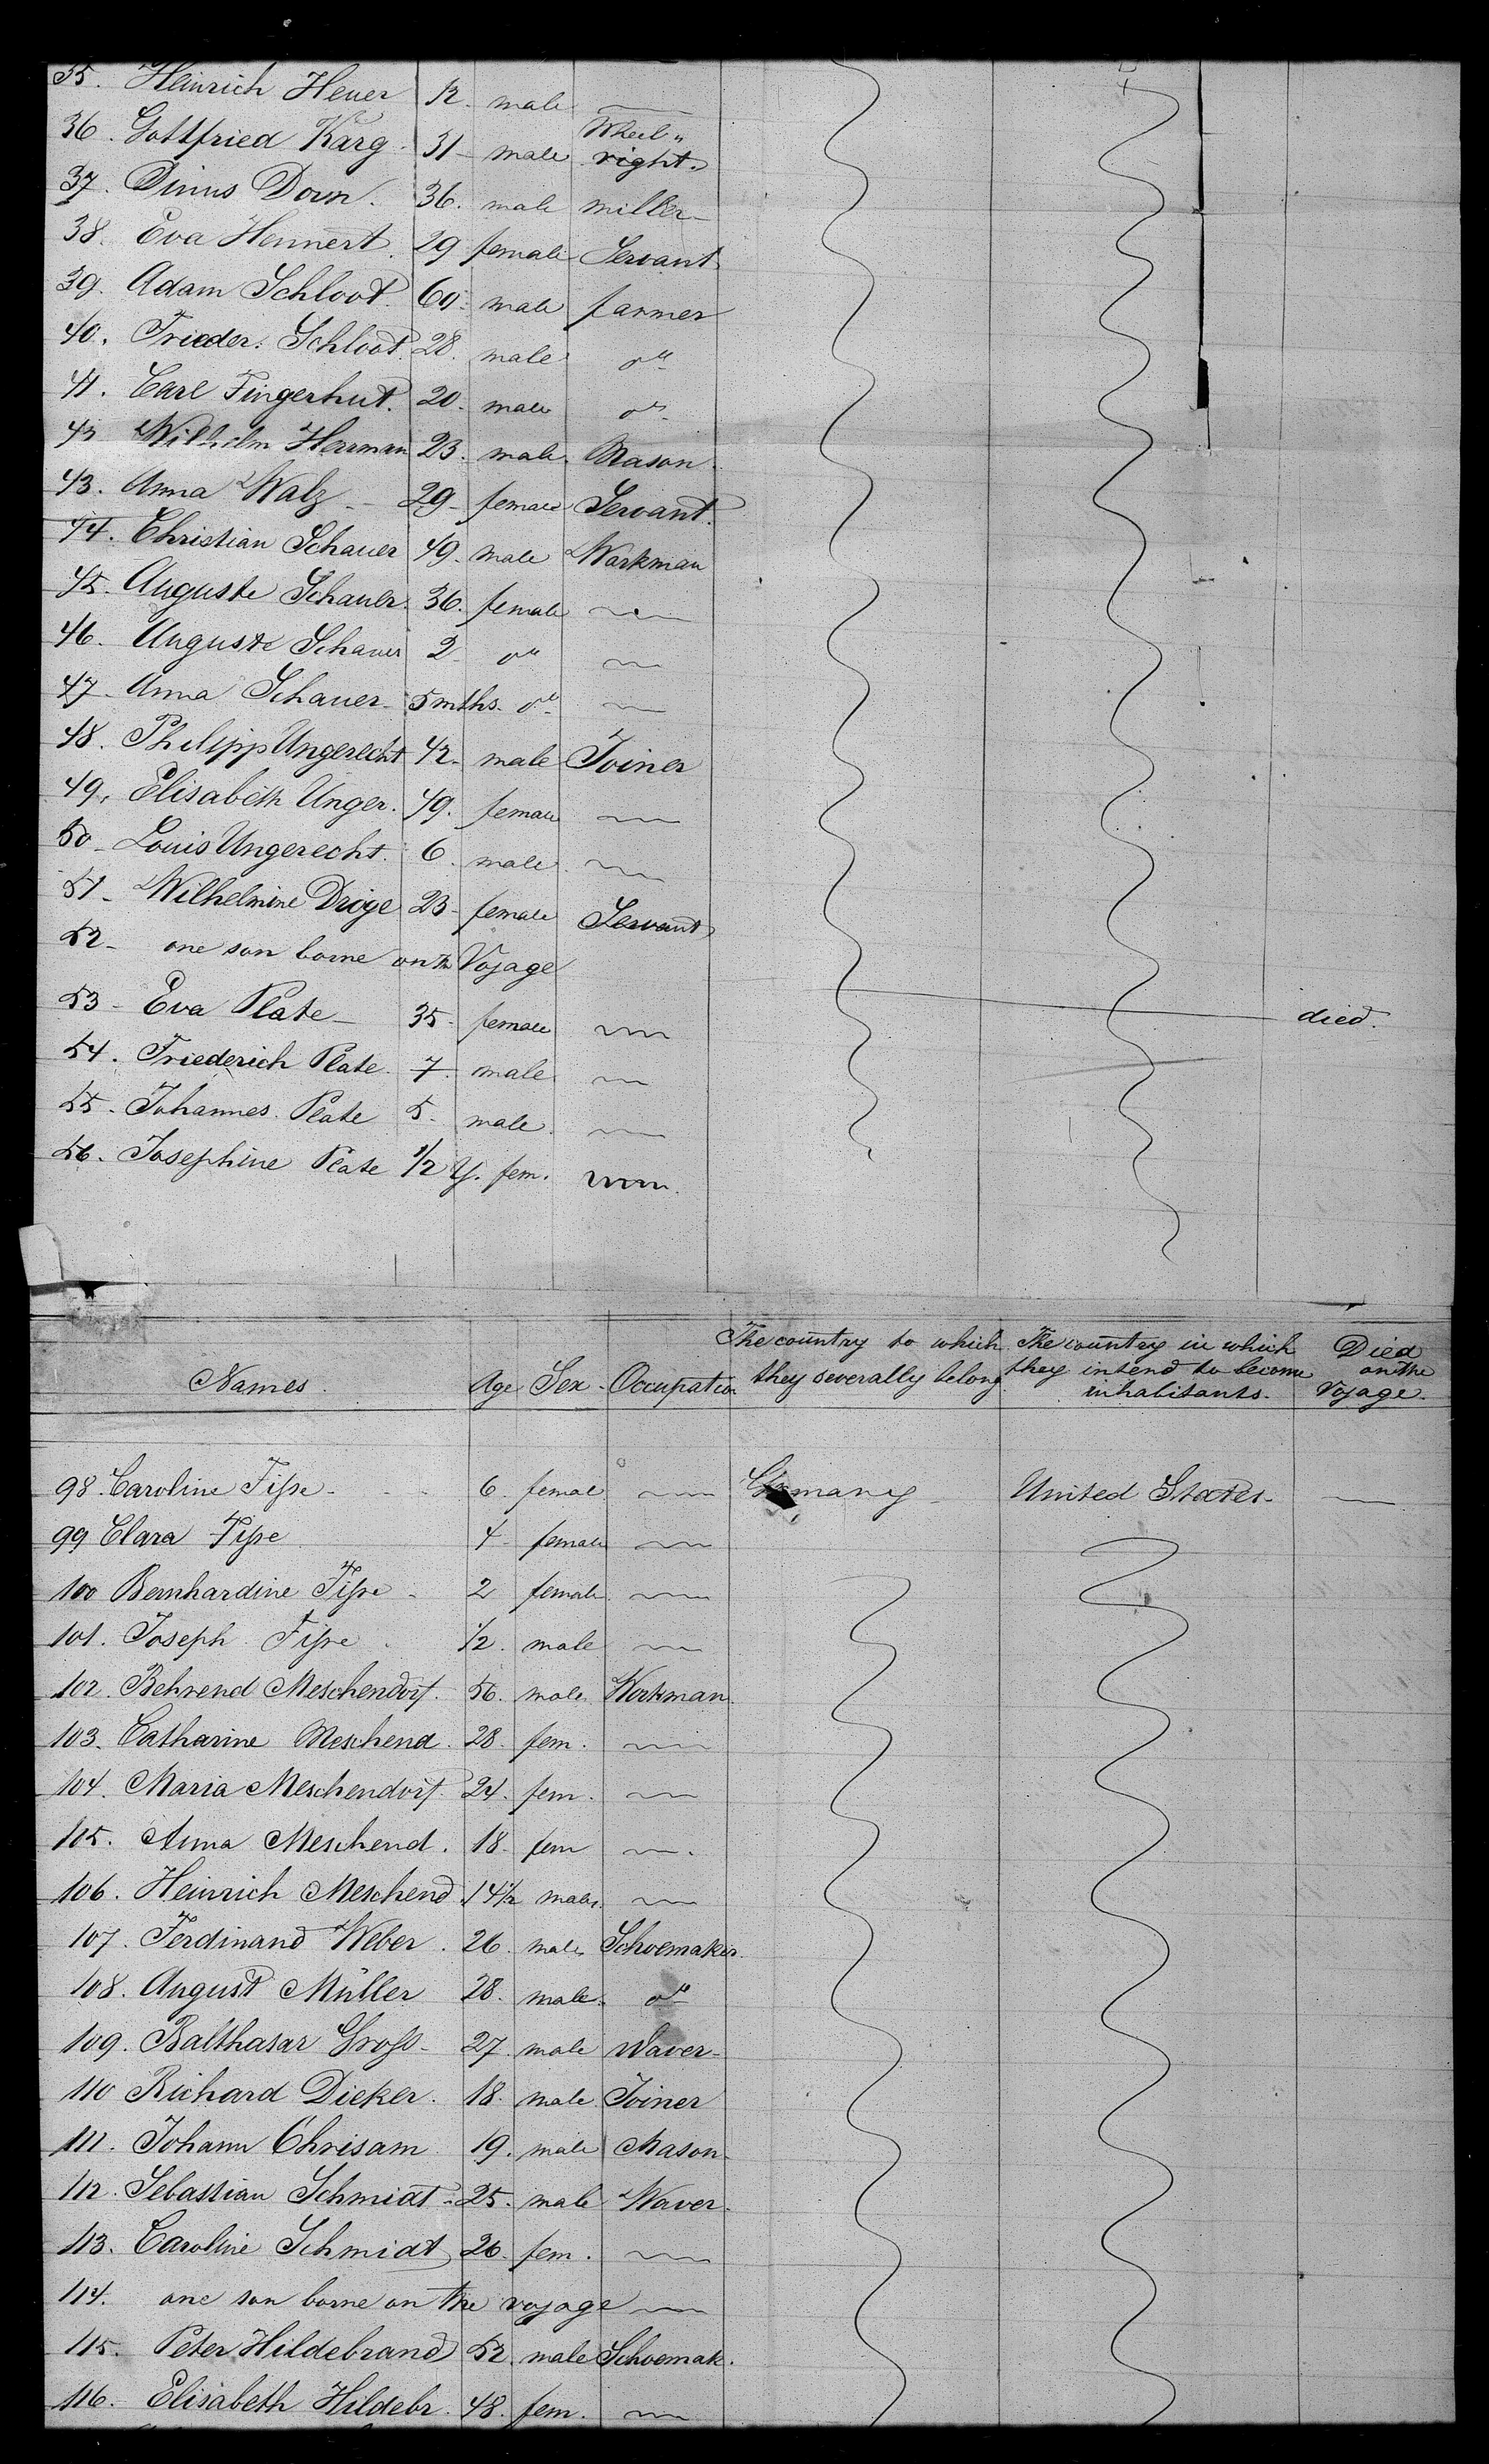 35. Heinrich Heuer 12. male
36. Gottfried Karg. 31 - male Wheel"
right.
37. Dinus Dorn. 36. male miller -
38. Eva Hennert. 29 female Servant
39. Adam Schloot. 60. male farmer
40. Frieder. Schloot. 28. male do
41. Carl Fingerhut. 20. male do
42 Wilhelm Herrman 23. male. Mason.
43. Anna Walz - 29 - female Servant.
44. Christian Schauer 49. male Workman
45. Auguste Schauer. 36. female
46. Auguste Schauer 2 do
47 - Anna Schauer - 5 mths. do
48. Philipp Ungerecht 42. male Joiner
49. Elisabeth Unger. 49. female
50 - Louis Ungerecht. 6. male
51 - Wilhelmine Dröge 23 - female Servant
52 - one son borne on the Voyage
53 - Eva Plate - 35 - female died.
54. Friederich Plate. 7. male
55 - Johannes Plate 5 - male
56. Josephine Plate 1/2 y. fem.
Names. Age Sex - Occupation The country to which they severally belong The country in which they intend to become inhabitants. Died on the Voyage.
98. Caroline Fisse - 6. femal Germany United States.
99 Clara Fisse 4 - female
100 Bernhardine Fisse - 2 female
101. Joseph Fisse 1/2. male
102. Behrend Meschendorf. 56. male Workman.
103. Catharine Meschend. 28. fem.
104. Maria Meschendorf. 24. fem.
105. Anna Meschend. 18. fem
106. Heinrich Meschend. 14 1/2 male.
107. Ferdinand Weber. 26. male Schoemaker.
108. August Müller 28. male. do
109. Balthasar Gross - 27. male Waver -
110 Richard Dieker. 18. male Joiner
111. Johann Chrisam 19. male Mason -
112. Sebastian Schmidt - 25. male Waver -
113. Caroline Schmidt 26. fem.
114. one son borne on the voyage
115. Peter Hildebrand 52. male Schoemak.
116. Elisabeth Hildebr. 48. fem.